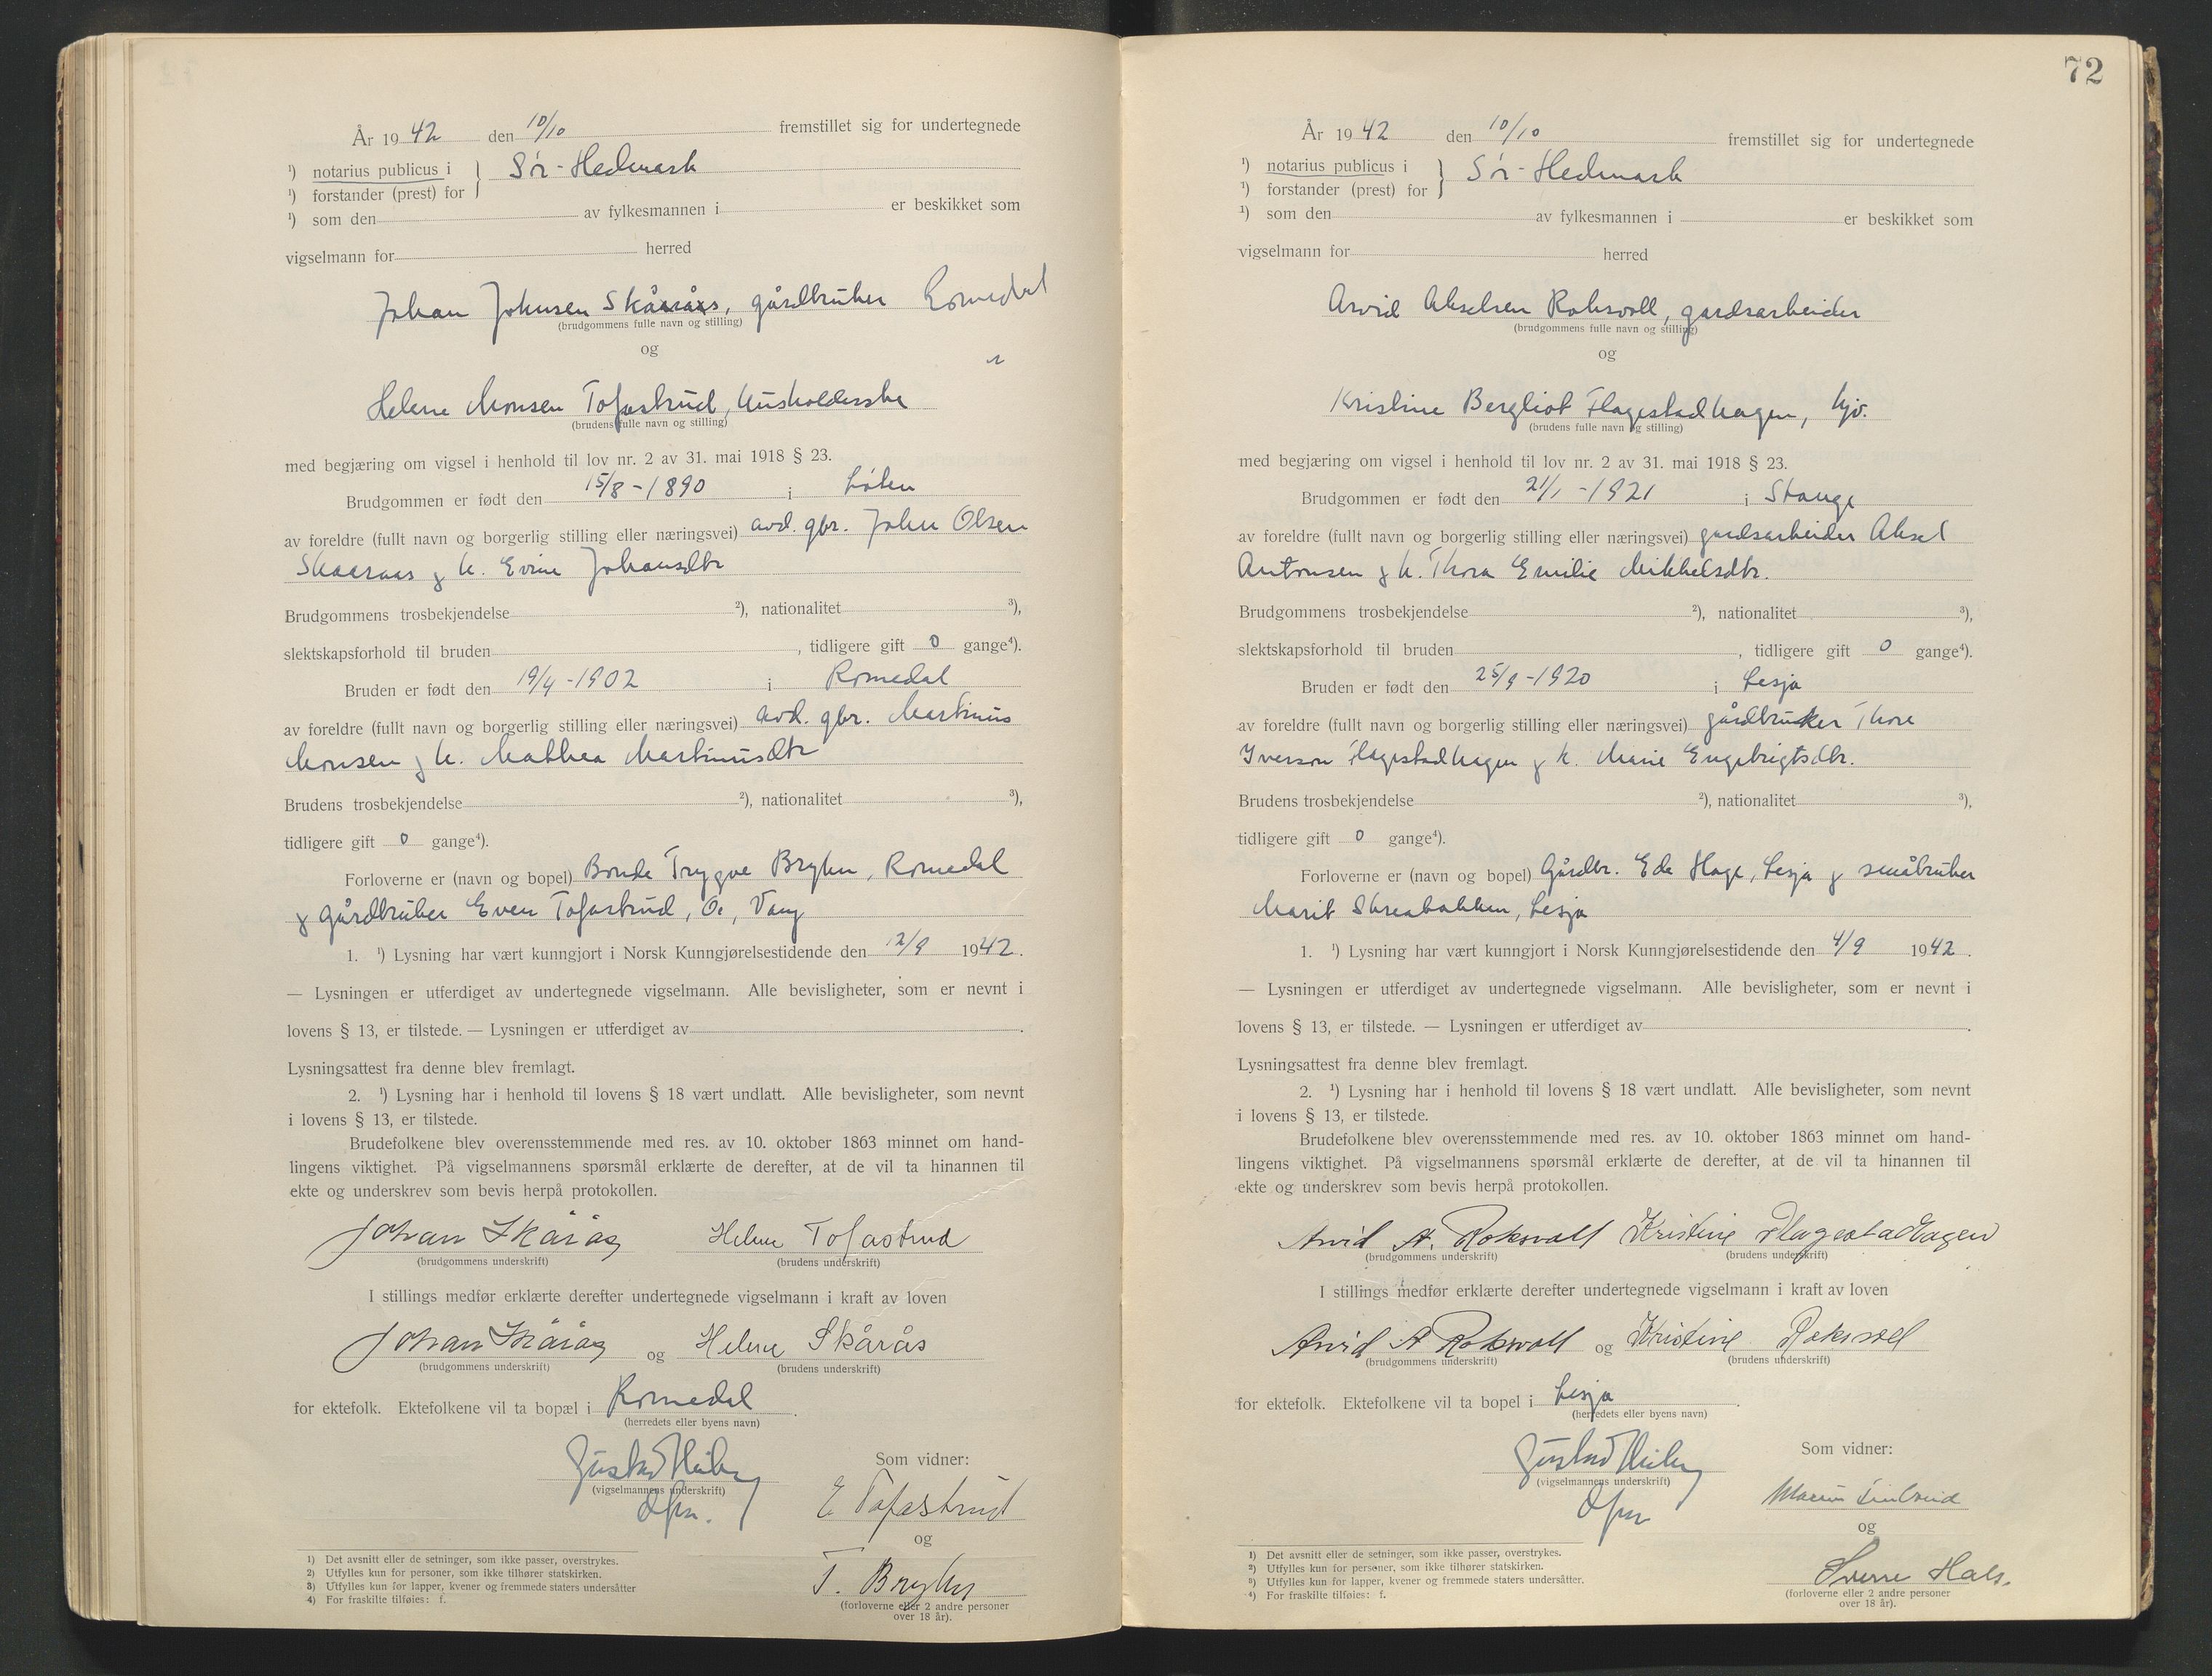 År 1942 den 10/10 fremstillet sig for undertegnede
¹) notarius publicus i } Sør-Hedmark
¹) forstander (prest) for
¹) som den av fylkesmannen i er beskikket som
vigselmann for herred
Johan Johnsen Skårås, gårdbruker Romedal
(brudgommens fulle navn og stilling)
og
Helene Monsen Tofastrud, husholderske
(brudens fulle navn og stilling)
med begjæring om vigsel i henhold til lov nr. 2 av 31. mai 1918 § 23.
Brudgommen er født den 15/8-1890 i Löten
av foreldre (fullt navn og borgerlig stilling eller næringsvei) avd. gbr. John Olsen
Skaaraas & h. Evine Johansdtr
Brudgommens trosbekjendelse ²), nationalitet ³),
slektskapsforhold til bruden , tidligere gift 0 gange⁴).
Bruden er født den 19/4-1902 i Romedal
av foreldre (fullt navn og borgerlig stilling eller næringsvei) avd. gbr. Martinus
Monsen & h. Mathea Martinusdtr
Brudens trosbekjendelse ²), nationalitet ³),
tidligere gift 0 gange⁴).
Forloverne er (navn og bopel) Bonde Trygve Bryhn, Romedal
& gårdbruker Even Tofastrud, Ö., Vang
1. ¹) Lysning har vært kunngjort i Norsk Kunngjørelsestidende den 12/9 1942.
— Lysningen er utferdiget av undertegnede vigselmann. Alle bevisligheter, som er nevnt i
lovens § 13, er tilstede. — Lysningen er utferdiget av .
Lysningsattest fra denne blev fremlagt.
2. ¹) Lysning har i henhold til lovens § 18 vært undlatt. Alle bevisligheter, som nevnt
i lovens § 13, er tilstede.
Brudefolkene blev overensstemmende med res. av 10. oktober 1863 minnet om hand-
lingens viktighet. På vigselmannens spørsmål erklærte de derefter, at de vil ta hinannen til
ekte og underskrev som bevis herpå protokollen.
Johan Skårås Helene Tofastrud
(brudgommens underskrift) (brudens underskrift)
I stillings medfør erklærte derefter undertegnede vigselmann i kraft av loven
Johan Skårås og Helene Skårås
(brudgommens underskrift) (brudens underskrift)
for ektefolk. Ektefolkene vil ta bopæl i Romedal .
(herredets eller byens navn)
Gustav Heiberg
(vigselmannens underskrift)
Som vidner:
E Tofastrud
og
T. Bryhn
(forloverne eller 2 andre personer
over 18 år).
1) Det avsnitt eller de setninger, som ikke passer, overstrykes.
2) Utfylles kun for personer, som ikke tilhører statskirken.
3) Utfylles kun for lapper, kvener og fremmede staters undersåtter
4) For fraskilte tilføies: f.
72
År 1942 den 10/10 fremstillet sig for undertegnede
¹) notarius publicus i } Sør-Hedmark
¹) forstander (prest) for
¹) som den av fylkesmannen i er beskikket som
vigselmann for herred
Arvid Akselsen Roksvoll, gardsarbeider
(brudgommens fulle navn og stilling)
og
Kristine Bergliot Flagestadhagen, hjv.
(brudens fulle navn og stilling)
med begjæring om vigsel i henhold til lov nr. 2 av 31. mai 1918 § 23.
Brudgommen er født den 21/1-1921 i Stange
av foreldre (fullt navn og borgerlig stilling eller næringsvei) gardsarbeider Aksel
Antonsen & h. Thora Emilie Mikkelsdtr.
Brudgommens trosbekjendelse ²), nationalitet ³),
slektskapsforhold til bruden , tidligere gift 0 gange⁴).
Bruden er født den 25/9-1920 i Lesja
av foreldre (fullt navn og borgerlig stilling eller næringsvei) gårdbruker Thore
Iverson Flagestadhagen & h. Marie Engebrigtsdtr.
Brudens trosbekjendelse ²), nationalitet ³),
tidligere gift 0 gange⁴).
Forloverne er (navn og bopel) Gårdbr. Ede Hage, Lesja & småbruker
Marit Skreabakken, Lesja
1. ¹) Lysning har vært kunngjort i Norsk Kunngjørelsestidende den 4/9 1942.
— Lysningen er utferdiget av undertegnede vigselmann. Alle bevisligheter, som er nevnt i
lovens § 13, er tilstede. — Lysningen er utferdiget av .
Lysningsattest fra denne blev fremlagt.
2. ¹) Lysning har i henhold til lovens § 18 vært undlatt. Alle bevisligheter, som nevnt
i lovens § 13, er tilstede.
Brudefolkene blev overensstemmende med res. av 10. oktober 1863 minnet om hand-
lingens viktighet. På vigselmannens spørsmål erklærte de derefter, at de vil ta hinannen til
ekte og underskrev som bevis herpå protokollen.
Arvid A. Roksvoll Kristine Flagestadhagen
(brudgommens underskrift) (brudens underskrift)
I stillings medfør erklærte derefter undertegnede vigselmann i kraft av loven
Arvid A Roksvoll og Kristine Roksvoll
(brudgommens underskrift) (brudens underskrift)
for ektefolk. Ektefolkene vil ta bopel i Lesja .
(herredets eller byens navn)
Gustav Heiberg
(vigselmannens underskrift)
Som vidner:
og
Sverre Hals.
(forloverne eller 2 andre personer
over 18 år).
1) Det avsnitt eller de setninger, som ikke passer, overstrykes.
2) Utfylles kun for personer, som ikke tilhører statskirken.
3) Utfylles kun for lapper, kvener og fremmede staters undersåtter.
4) For fraskilte tilføies: f.